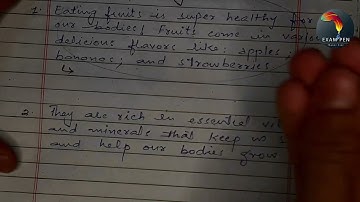 1. Eating fruits is super healthy for
our bodies! fruits come in
delicious flavors like: apples,
bananas, and strawberries
2. They are rich in essential
and minerals that keep us
and help our bodies grow
EXAM PEN